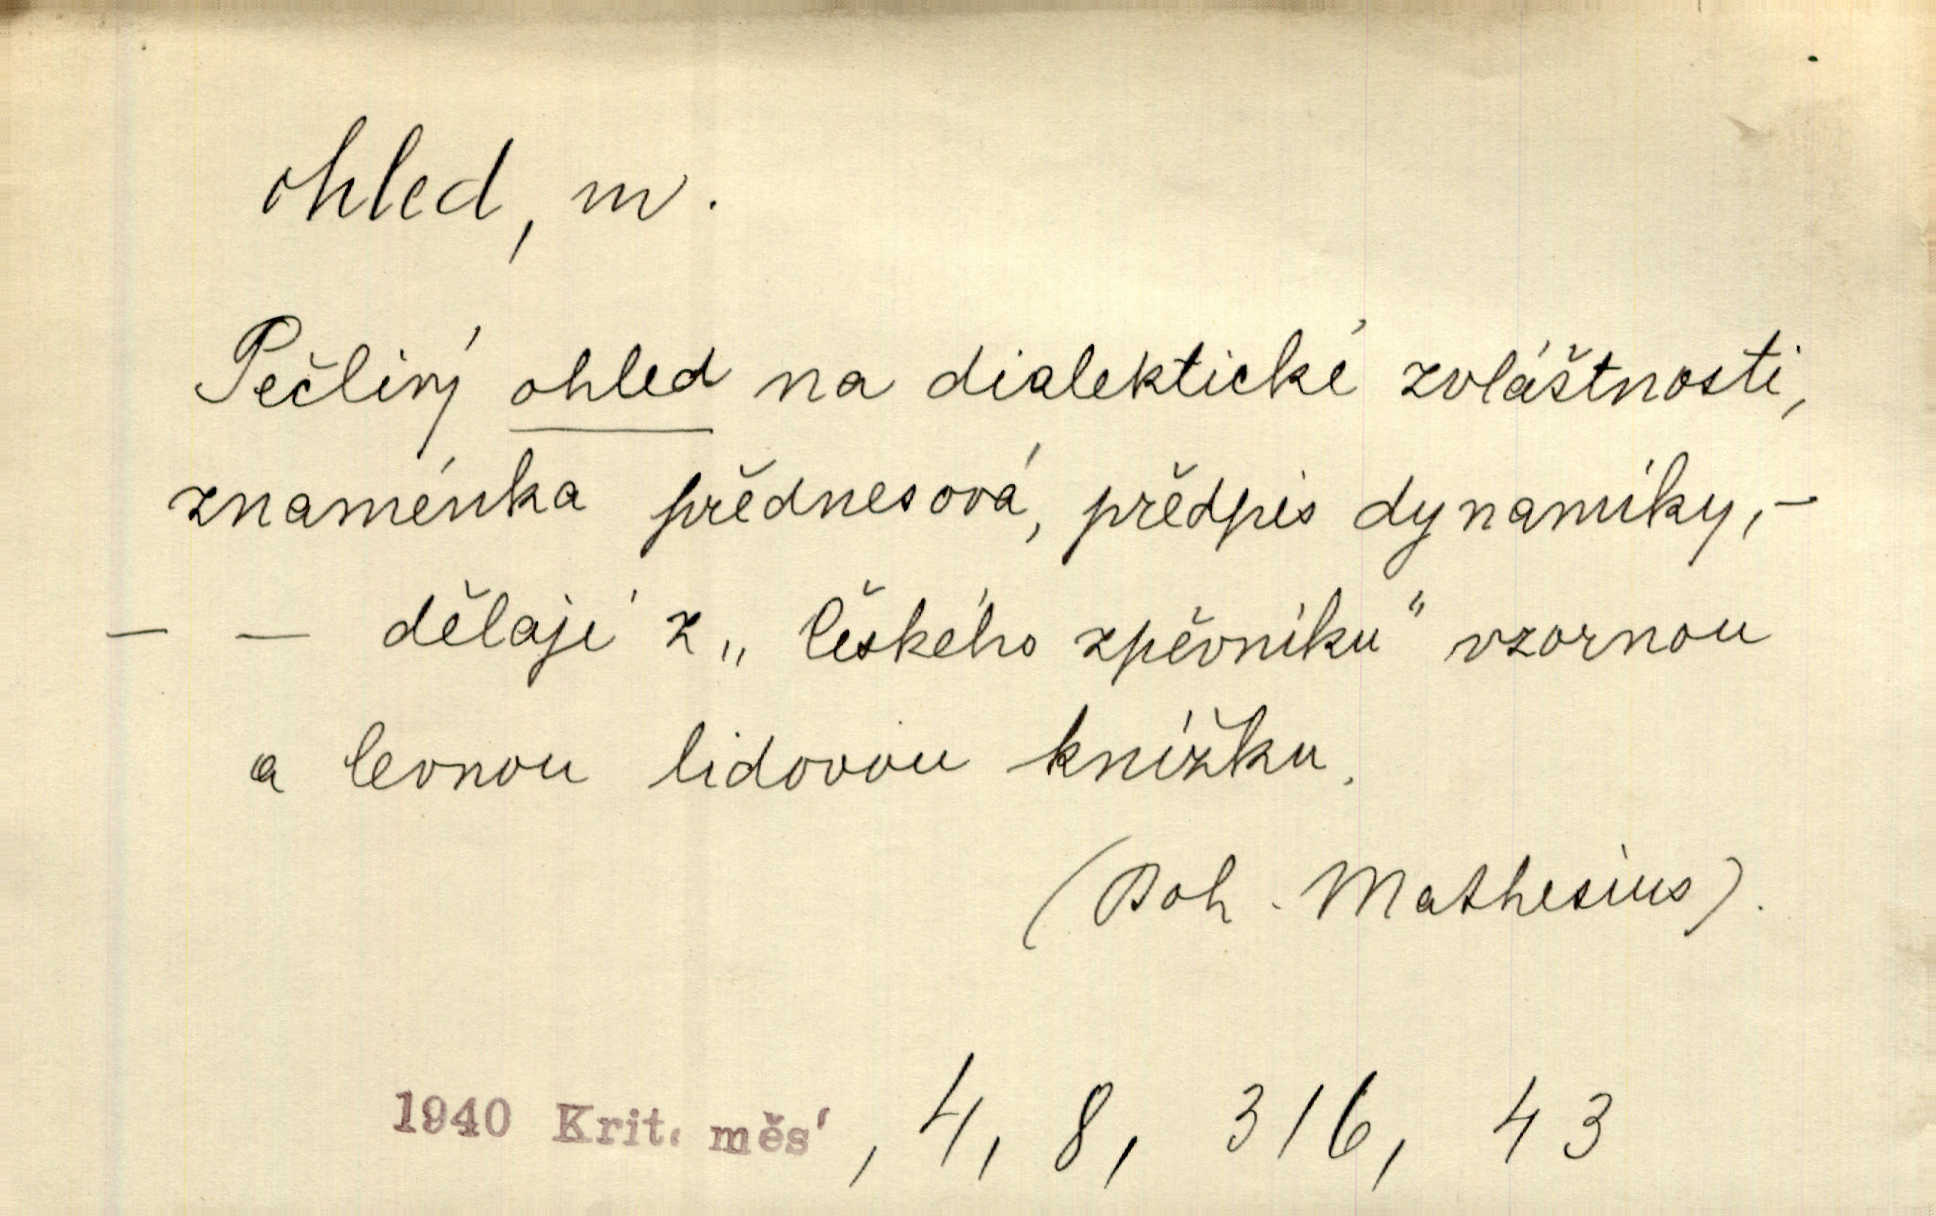 ohled, m.
Pečlivý ohled na dialektické zvláštnosti,
znaménka přednesová, předpis dynamiky, –
– – dělají z „Českého zpěvníku“ vzornou
a levnou lidovou knížku.
(Boh. Mathesius).
1940 Krit. měs', 4, 8, 316, 43